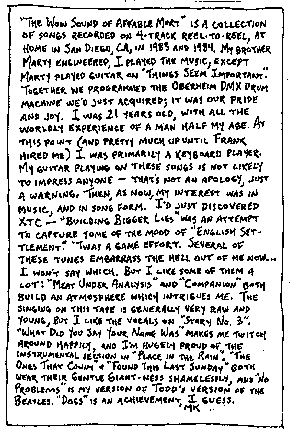 "THE WOW SOUND OF AFFABLE MORT" IS A COLLECTION
OF SONGS RECORDED ON 4-TRACK REEL-TO-REEL, AT
HOME IN SAN DIEGO, CA, IN 1983 AND 1984. MY BROTHER
MARTY ENGINEERED, I PLAYED THE MUSIC, EXCEPT
MARTY PLAYED GUITAR ON "THINGS SEEM IMPORTANT."
TOGETHER WE PROGRAMMED THE OBERHEIM DMX DRUM
MACHINE WE'D JUST ACQUIRED; IT WAS OUR PRIDE
AND JOY. I WAS 21 YEARS OLD, WITH ALL THE
WORLDLY EXPERIENCE OF A MAN HALF MY AGE. AT
THIS POINT (AND PRETTY MUCH UP UNTIL FRANK
HIRED ME) I WAS PRIMARILY A KEYBOARD PLAYER.
MY GUITAR PLAYING ON THESE SONGS IS NOT LIKELY
TO IMPRESS ANYONE - THAT'S NOT AN APOLOGY, JUST
A WARNING. THEN, AS NOW, MY INTEREST WAS IN
MUSIC, AND IN SONG FORM. I'D JUST DISCOVERED
XTC - "BUILDING BIGGER LIES" WAS AN ATTEMPT
TO CAPTURE SOME OF THE MOOD OF "ENGLISH SET-
TLEMENT." 'TWAS A GAME EFFORT. SEVERAL OF
THESE TUNES EMBARRASS THE HELL OUT OF ME NOW...
I WON'T SAY WHICH. BUT I LIKE SOME OF THEM A
LOT: "MEAT UNDER ANALYSIS" AND "COMPANION" BOTH
BUILD AN ATMOSPHERE WHICH INTRIGUES ME. THE
SINGING ON THIS TAPE IS GENERALLY VERY RAW AND
YOUNG, BUT I LIKE THE VOCALS ON "STORY NO. 3".
"WHAT DID YOU SAY YOUR NAME WAS" MAKES ME TWITCH
AROUND HAPPILY, AND I'M HUGELY PROUD OF THE
INSTRUMENTAL SECTION IN "PLACE IN THE RAIN". "THE
ONES THAT COUNT" & "FOUND THIS LAST SUNDAY" BOTH
WEAR THEIR GENTLE GIANT-NESS SHAMELESSLY, AND "NO
PROBLEMS" IS MY VERSION OF TODD'S VERSION OF THE
BEATLES. "DAGS" IS AN ACHIEVEMENT, I GUESS.
MK